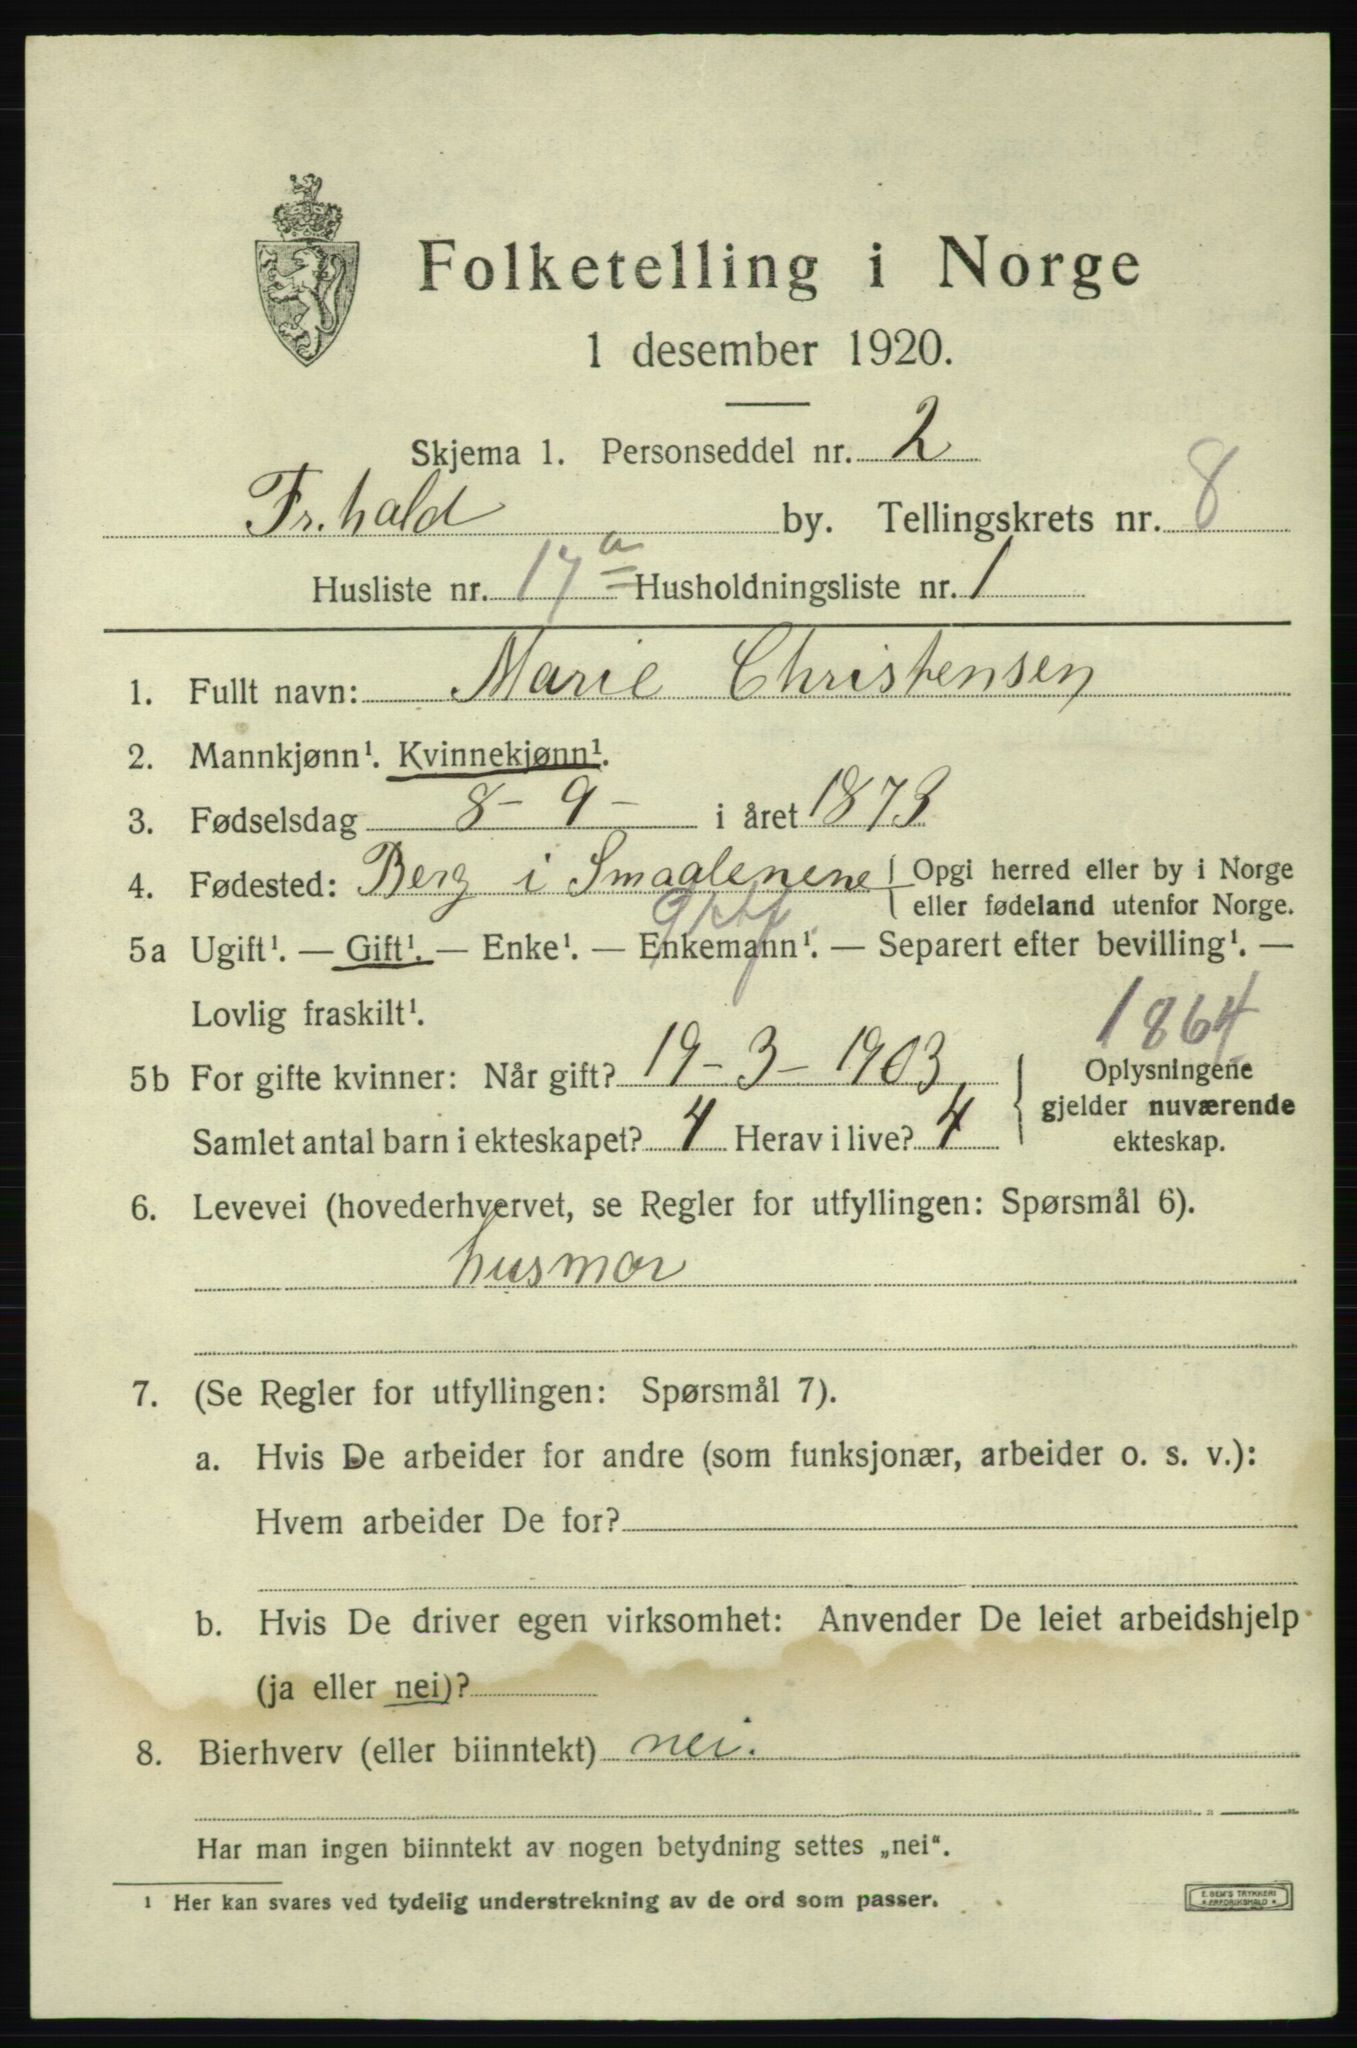 Folketelling i Norge
1 desember 1920.
Skjema 1. Personseddel nr. 2
Fr.hald by. Tellingskrets nr. 8
Husliste nr. 17a Husholdningsliste nr. 1
1. Fullt navn: Marie Christensen
2. Mannkjønn¹. Kvinnekjønn¹.
3. Fødselsdag 8 - 9 - i året 1873
4. Fødested: Berg i Smaalenene { Opgi herred eller by i Norge
eller fødeland utenfor Norge.
5a Ugift¹. — Gift¹. — Enke¹. — Enkemann¹. — Separert efter bevilling¹. —
Lovlig fraskilt¹.
1864
5b For gifte kvinner: Når gift? 19 - 3 - 1903
Samlet antal barn i ekteskapet? 4 Herav i live? 4
Oplysningene
gjelder nuværende
ekteskap.
6. Levevei (hovederhvervet, se Regler for utfyllingen: Spørsmål 6).
husmor
7. (Se Regler for utfyllingen: Spørsmål 7).
a. Hvis De arbeider for andre (som funksjonær, arbeider o. s. v.):
Hvem arbeider De for?
b. Hvis De driver egen virksomhet: Anvender De leiet arbeidshjelp
(ja eller nei)?
8. Bierhverv (eller biinntekt) nei.
Har man ingen biinntekt av nogen betydning settes „nei“.
¹ Her kan svares ved tydelig understrekning av de ord som passer.
E. SEM'S TRYKKERI
FREDRIKSHALD